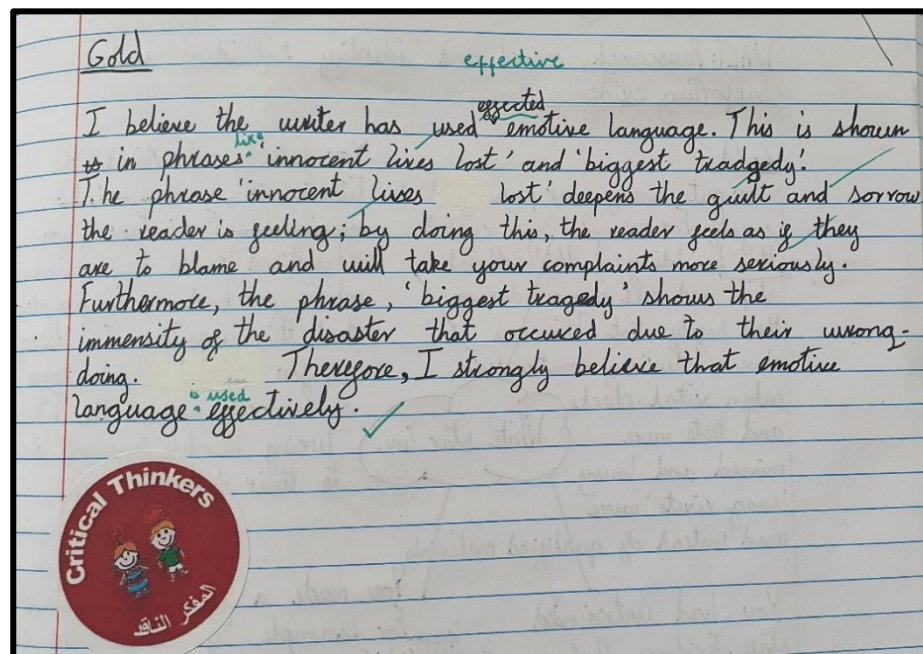 Gold
effective
effected
I believe the writer has used emotive language. This is shown
like
in phrases 'innocent lives lost' and 'biggest tradgedy'.
The phrase 'innocent lives lost' deepens the guilt and sorrow
the reader is feeling; by doing this, the reader feels as if they
are to blame and will take your complaints more seriously.
Furthermore, the phrase, 'biggest tragedy' shows the
immensity of the disaster that occured due to their wrong-
doing. Therefore, I strongly believe that emotive
is used
language effectively.
Critical Thinkers
المفكر الناقد